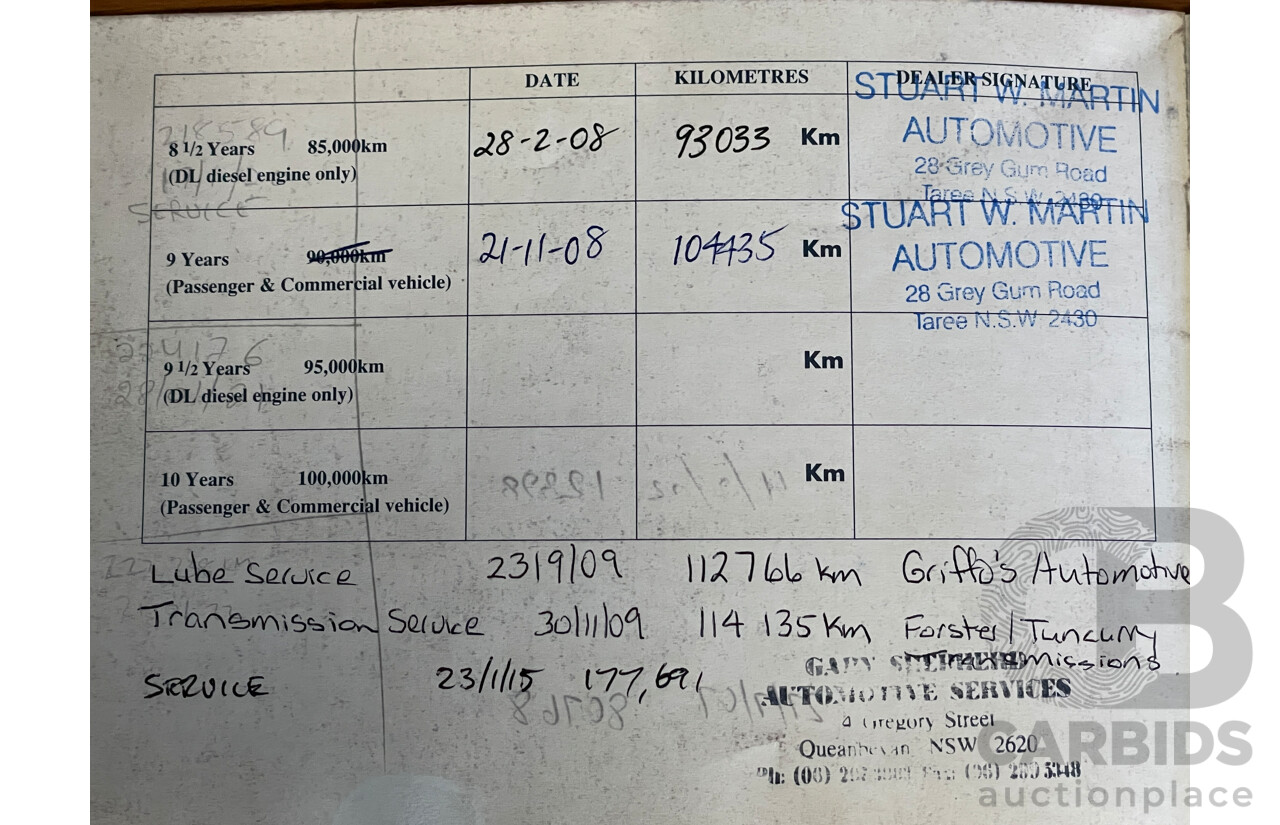 DATE KILOMETRES DEALER SIGNATURE
STUART W. MARTIN
AUTOMOTIVE
28 Grey Gum Road
Taree N.S.W. 2430
218589
8 1/2 Years 85,000km 28-2-08 93033 Km
(DL diesel engine only)
SERVICE
STUART W. MARTIN
AUTOMOTIVE
28 Grey Gum Road
Taree N.S.W. 2430
9 Years 90,000km 21-11-08 104435 Km
(Passenger & Commercial vehicle)
9 1/2 Years 95,000km Km
(DL diesel engine only)
10 Years 100,000km Km
(Passenger & Commercial vehicle)
Lube Service 23/9/09 112766 km Griffo's Automotive
Transmission Service 30/11/09 114 135 Km Forster/Tuncurry
Transmissions
SERVICE 23/1/15 177,691
GARY
AUTOMOTIVE SERVICES
4 Gregory Street
Queanbeyan NSW 2620
Ph: (06)
CARBIDS
auctionplace